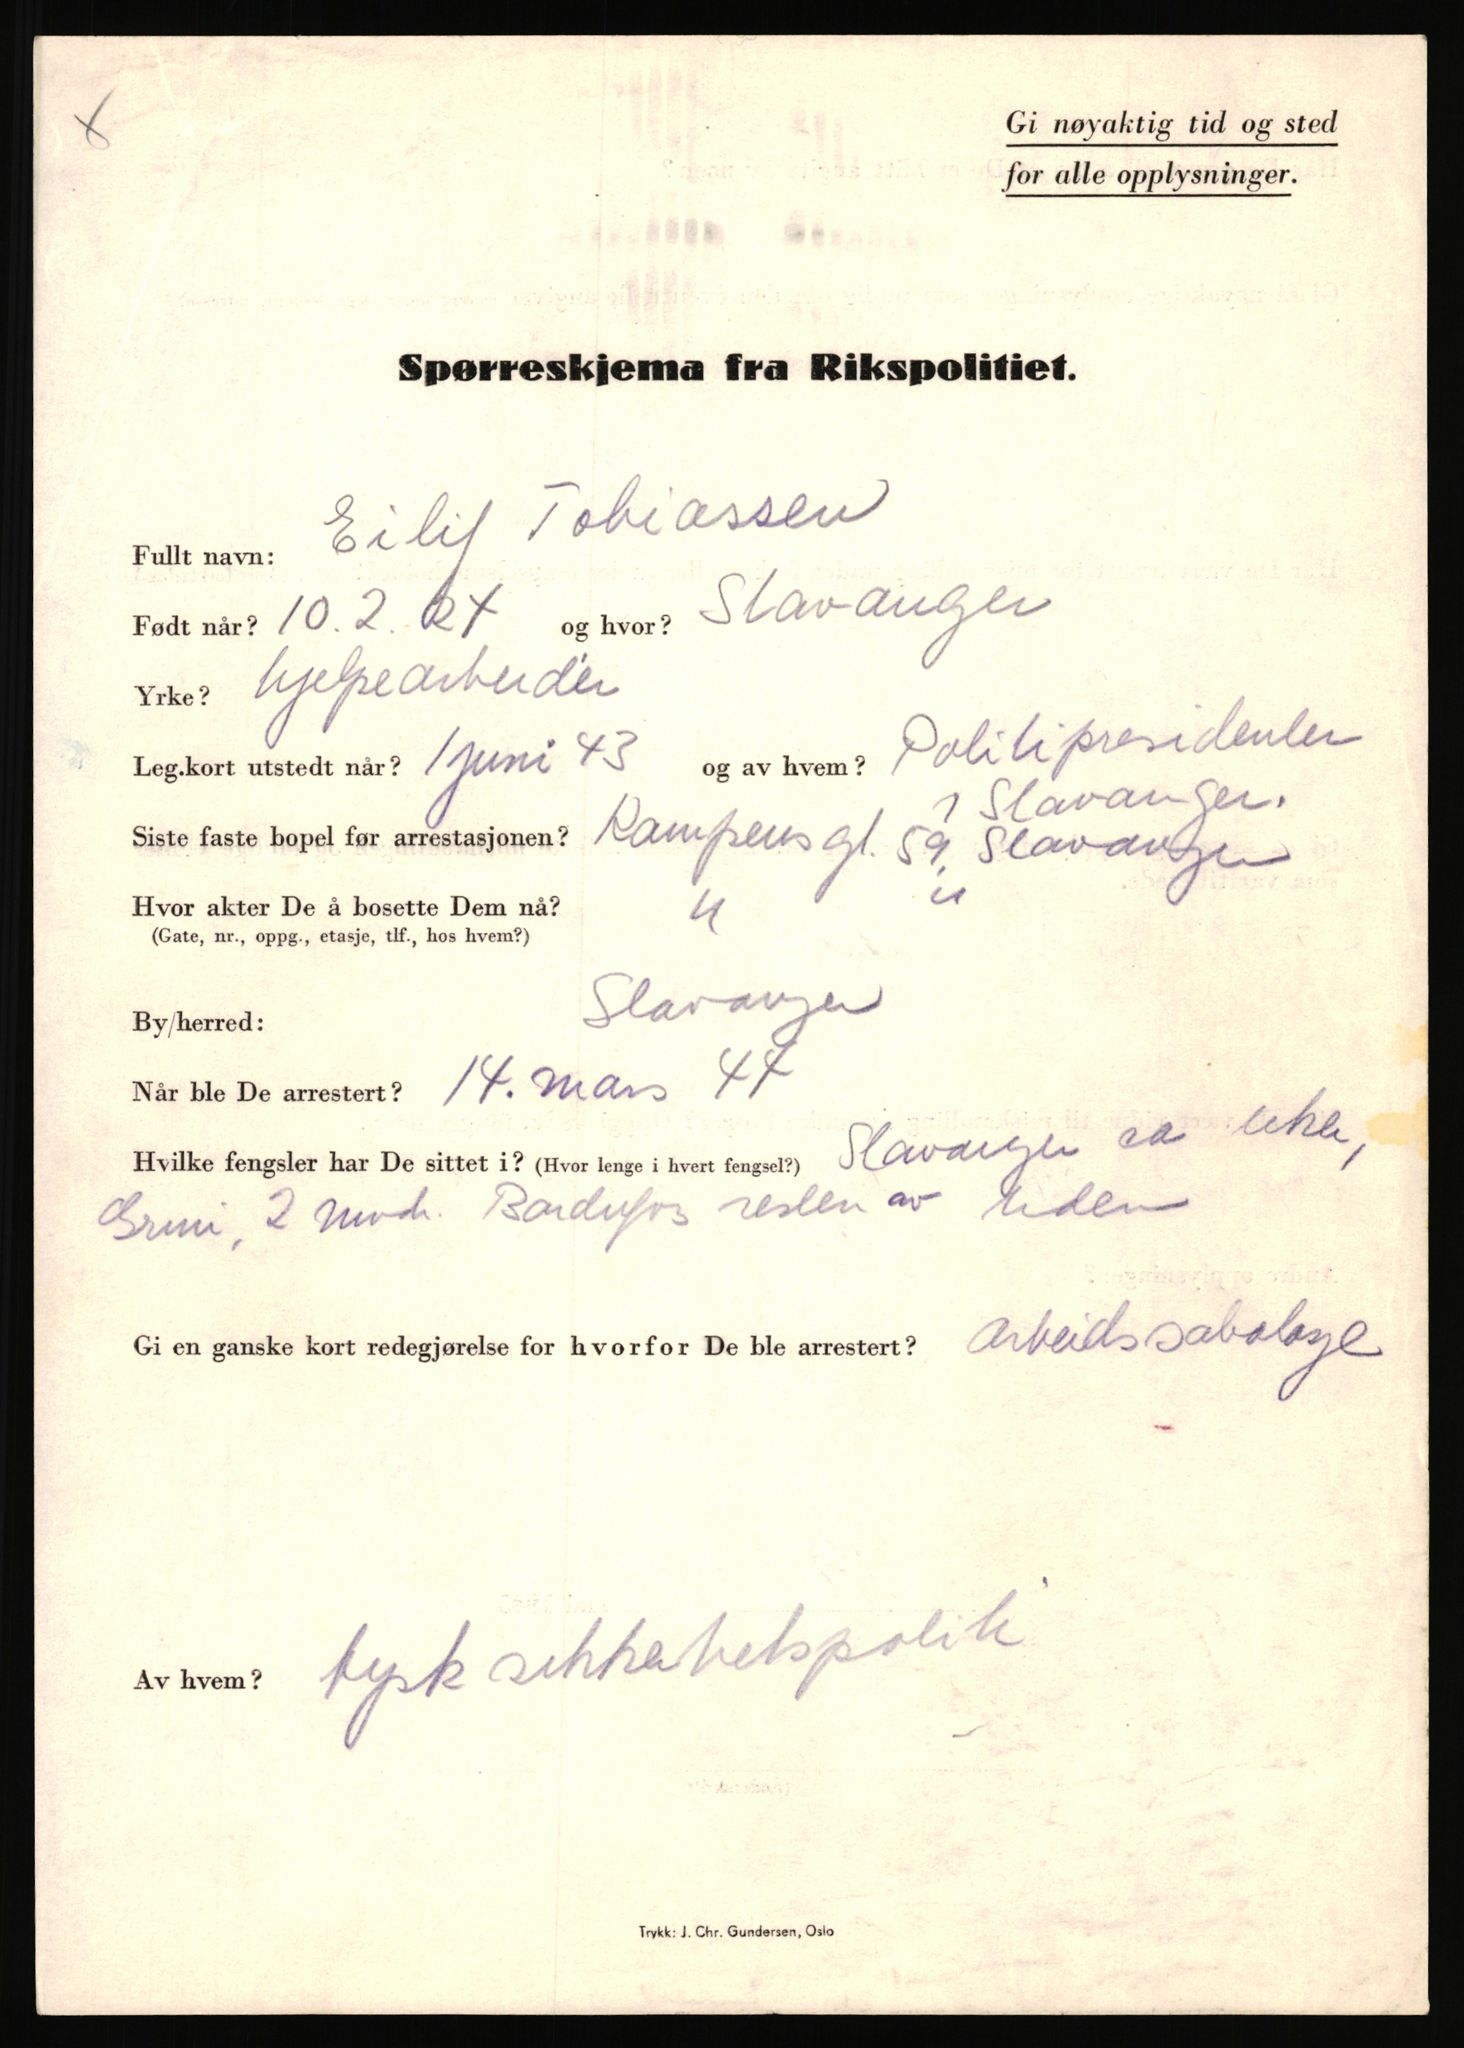 Gi nøyaktig tid og sted
for alle opplysninger.
Spørreskjema fra Rikspolitiet.
Fullt navn: Eilif Tobiassen
Født når? 10. 2. 24 og hvor? Stavanger
Yrke? hjelpearbeider
Leg.kort utstedt når? 1 juni 43 og av hvem? Politipresidenten
i Stavanger.
Siste faste bopel før arrestasjonen? Kampens gt. 59, Stavanger
Hvor akter De å bosette Dem nå? " "
(Gate, nr., oppg., etasje, tlf., hos hvem?)
By/herred: Stavanger
Når ble De arrestert? 14. mars 44
Hvilke fengsler har De sittet i? (Hvor lenge i hvert fengsel?) Stavanger ca uker,
Grini, 2 mndr. Bardufos resten av tiden
Gi en ganske kort redegjørelse for hvorfor De ble arrestert? arbeidssabotasje
Av hvem? tysk sikkerhetspoliti
Trykk: J. Chr. Gundersen, Oslo